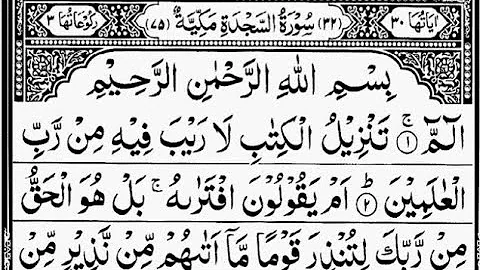 اٰیَاتُهَا ٣٠ (٣٢) سُوْرَةُ السَّجْدَةِ مَكِّیَّةٌ (٧٥) رُكُوْعَاتُهَا ٣
بِسْمِ اللّٰهِ الرَّحْمٰنِ الرَّحِیْمِ
الٓمّٓ ۚ ﴿١﴾ تَنْزِیْلُ الْكِتٰبِ لَا رَیْبَ فِیْهِ مِنْ رَّبِّ
الْعٰلَمِیْنَ ؕ ﴿٢﴾ اَمْ یَقُوْلُوْنَ افْتَرٰىهُ ۚ بَلْ هُوَ الْحَقُّ
مِنْ رَّبِّكَ لِتُنْذِرَ قَوْمًا مَّاۤ اَتٰىهُمْ مِّنْ نَّذِیْرٍ مِّنْ